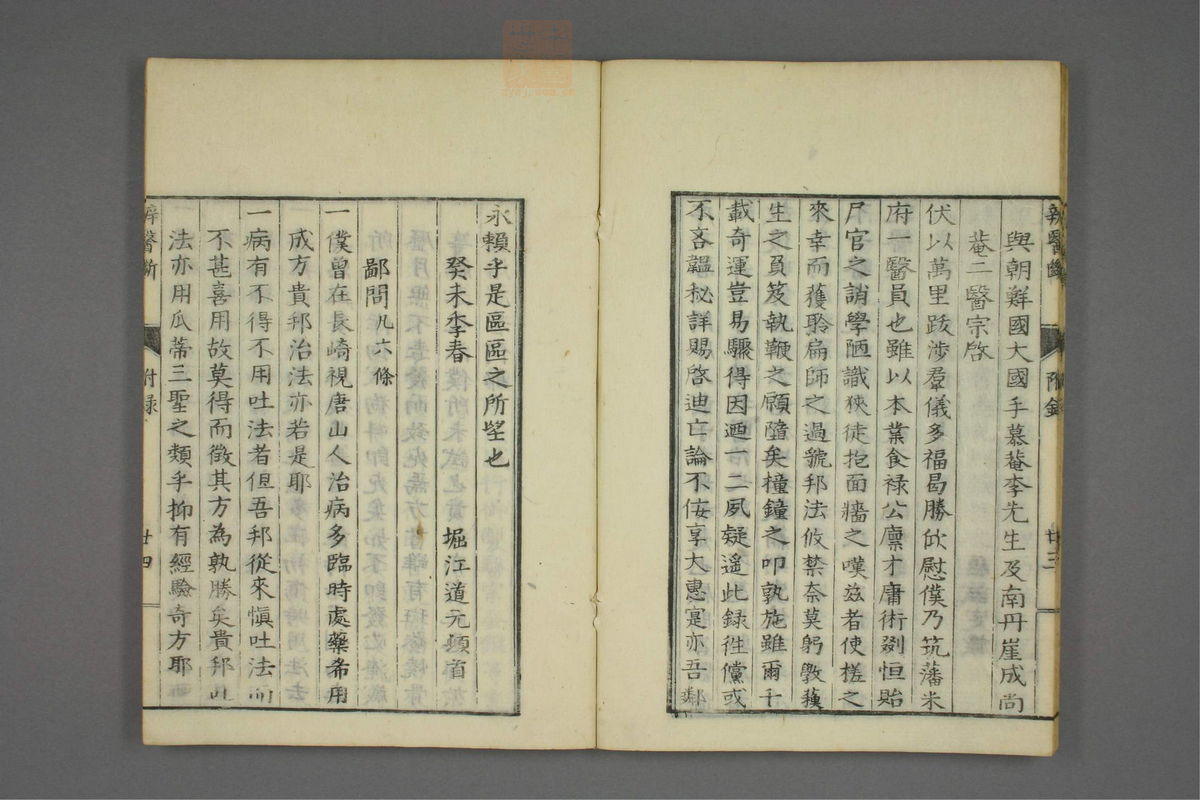 與朝鮮國大國手慕菴李先生及南丹崖成尚
菴二醫宗啓
伏以萬里跋涉羣儀多福曷勝欣慰僕乃筑藩米
府一醫員也雖以本業食祿公廩才庸術劉恒貽
尸官之誚學陋識狹徒抱面牆之嘆茲者使槎之
來幸而獲聆扁師之過虢邦法攸禁奈莫躬斅
生之負笈執鞭之願隨矣橦鐘之叩孰施雖爾千
載奇運豈易驟得因迺一二夙疑遙此録徃儻或
不吝韞秘詳賜啓迪亡論不侫享大惠寔亦吾鄰
醫斷
附錄
廿三
永賴乎是區區之所望也
癸未季春
堀江道元頓首
鄙問凡六條
一僕曾在長崎視唐山人治病多臨時處藥希用
成方貴邦治法亦若是耶
一病有不得不用吐法者但吾邦從來愼吐法而
不甚喜用故莫得而徵其方為孰勝矣貴邦此
法亦用瓜蒂三聖之類乎抑有經驗奇方耶
辨醫斷
附録
廿四